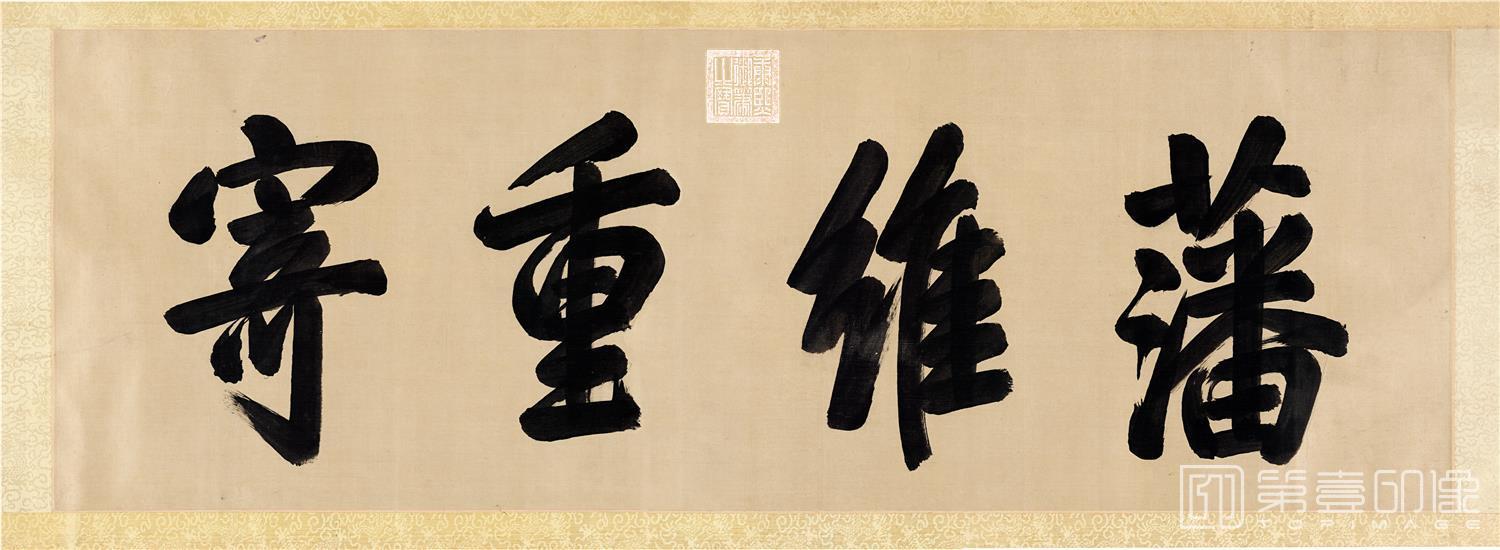 藩維重寄
康熙御筆之寶
第壹印像
TOPIMAGE